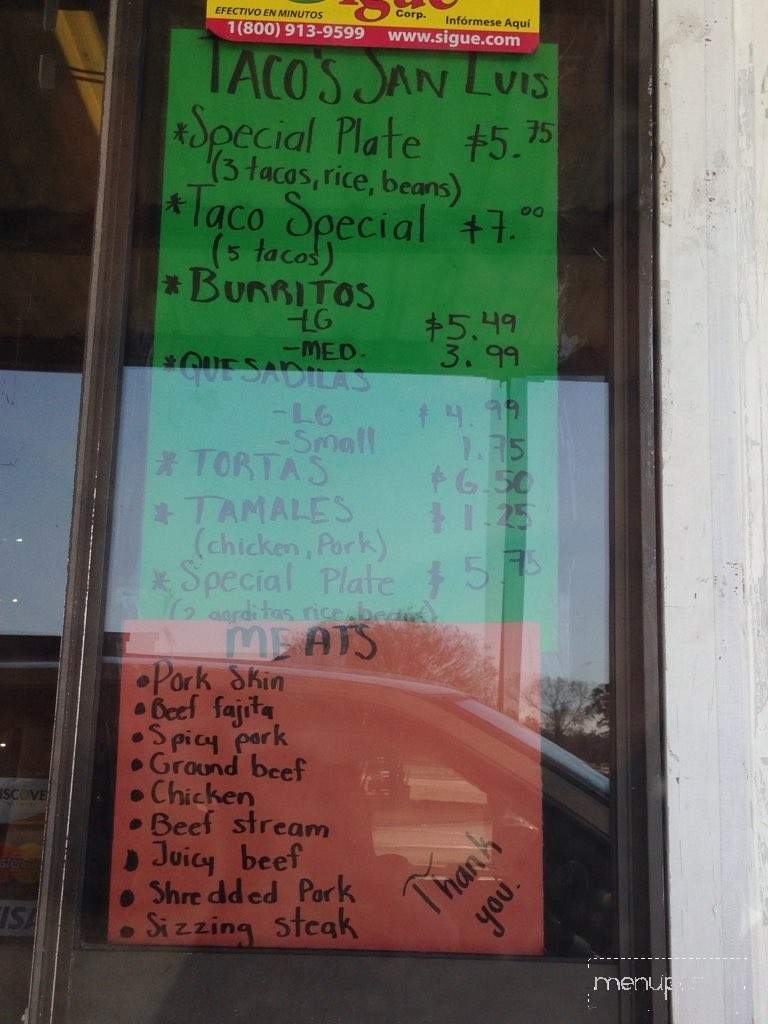 EFECTIVO EN MINUTOS
Sigue
Corp.
Infórmese Aquí
1(800) 913-9599 www.sigue.com
TACO'S SAN LUIS
*Special Plate $5.75
(3 tacos, rice, beans)
*Taco Special $7.00
(5 tacos)
*BURRITOS
-LG $5.49
-MED. 3.99
*QUESADILAS
-LG $4.99
-Small 1.75
* TORTAS $6.50
* TAMALES $1.25
(chicken, Pork)
*Special Plate $5.75
(2 gorditas rice, beans)
MEATS
•Pork Skin
•Beef fajita
•Spicy pork
•Ground beef
•Chicken
•Beef stream
•Juicy beef
•Shredded Pork
•Sizzing steak
Thank
you.
ISCOVE
VISA